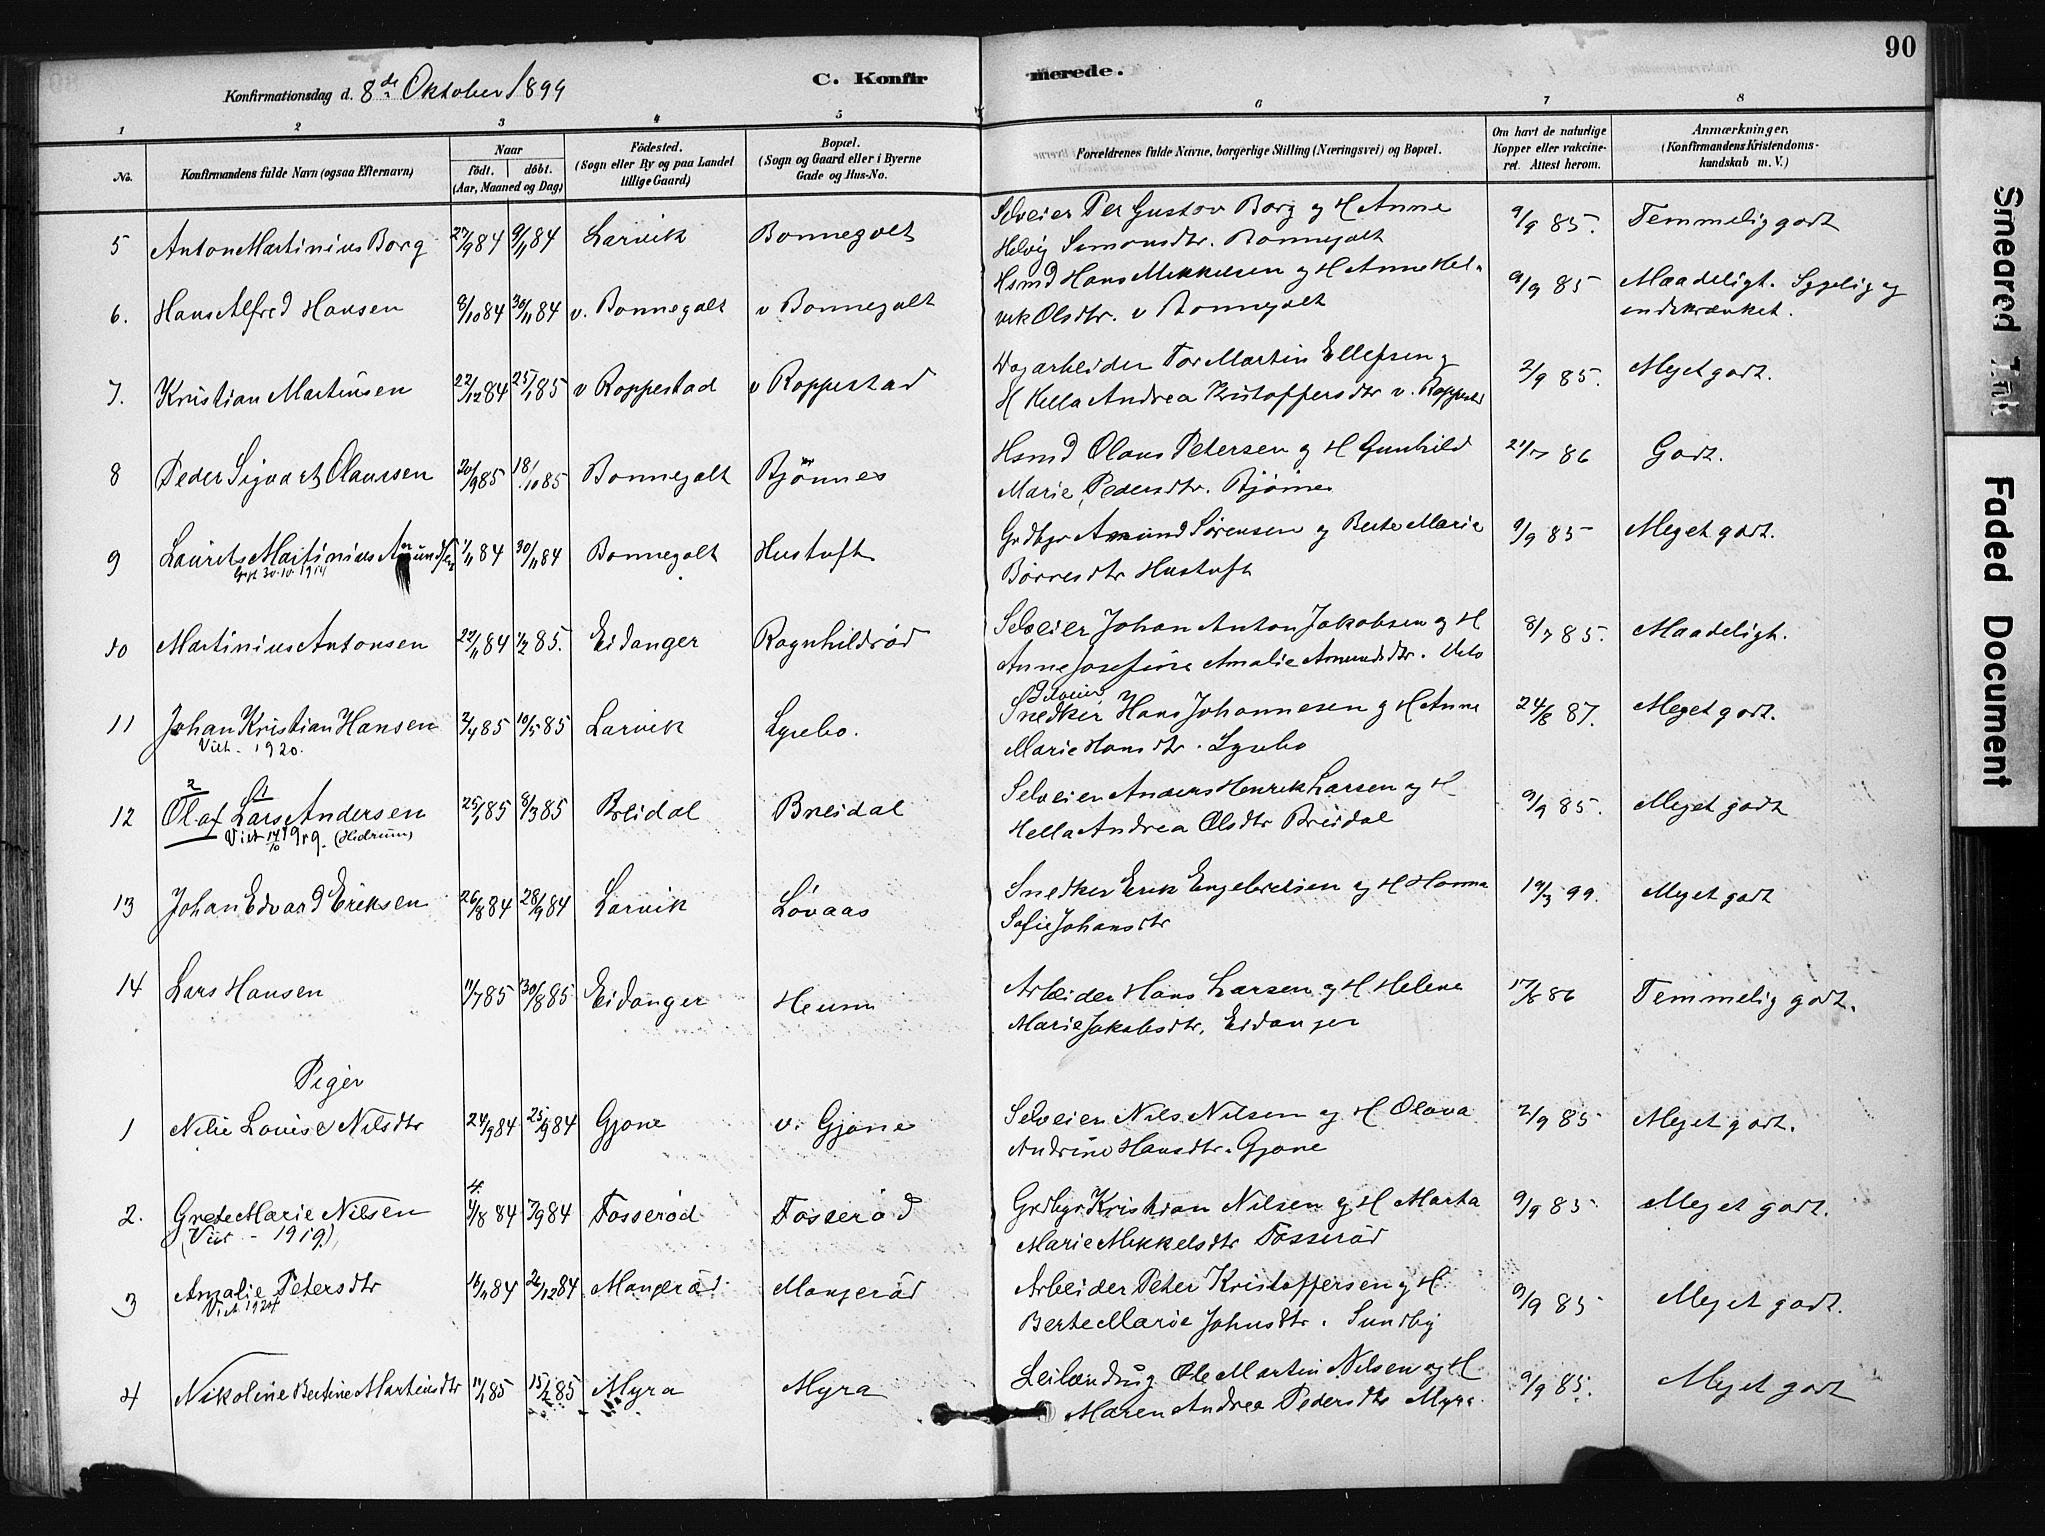 90
C. Konfirmerede.
Konfirmationsdag d. 8de Oktober 1899
1 2 3 4 5 6 7 8
No.
Konfirmandens fulde Navn (ogsaa Efternavn)
Naar
födt. döbt.
(Aar, Maaned og Dag)
Födested.
(Sogn eller By og paa Landet
tillige Gaard)
Bopæl.
(Sogn og Gaard eller i Byerne
Gade og Hus-No.
Forældrenes fulde Navne, borgerlige Stilling (Næringsvei) og Bopæl.
Om havt de naturlige
Kopper eller vakcine-
ret. Attest herom.
Anmærkninger.
(Konfirmandens Kristendoms-
kundskab m. V.)
5 Anton Martinius Borg 27/9 84 9/11 84 Larvik Bonnegolt Selveier Per Gustav Borg og H Anne 9/9 85. Temmelig godt
Helvig Simonsdtr. Bonnegolt
6. Hans Alfred Hansen 8/10 84 30/11 84 v. Bonnegolt v Bonnegolt Hsmd Hans Mikkelsen og H Anne Hel- 9/9 85 Maadeligt. Sygelig og
vik Olsdtr. v Bonnegolt aandskrænket.
7. Kristian Martinsen 22/12 84 25/1 85 v Roppestad v Roppestad Dagarbeider Tor Martin Ellefsen og 2/9 85. Meget godt.
H Hella Andrea Kristoffersdtr v. Roppestad
8 Peder Sigvart Olaussen 20/9 85 18/10 85 Bonnegolt Bjønnes Hsmd Olaus Petersen og H Gunhild 21/7 86 Godt.
Marie Pedersdtr. Bjønnes
9 Laurits Martinius Amundsen 1/11 84 30/11 84 Bonnegolt Hustuft Grdbgr Amund Sørensen og Berte Marie 9/9 85 Meget godt.
Gift 30.10.1914 Børresdtr Hustuft
10 Martinius Antonsen 22/11 84 1/2 85. Eidanger Ragnhildrød Selveier Johan Anton Jakobsen og H 8/7 85. Maadeligt.
Anne Josefine Amalie Amundsdtr.
Selveier
11 Johan Kristian Hansen 2/4 85 10/5 85 Larvik Lysebo. Snedker Hans Johannesen og H Anne 24/6 87. Meget godt.
Viet - 1920. Marie Hansdtr. Lysebo
2 1
12 Olaf Lars Andersen 25/1 85 8/3 85 Breidal Breidal Selveier Anders Henrik Larsen og H 9/9 85. Meget godt
Viet 17/10 1919. (Hedrum) Hella Andrea Olsdtr Breidal
13 Johan Edvard Eriksen 26/8 84 28/9 84 Larvik Løvaas Snedker Erik Engebretsen og H Hanna 19/3 99. Meget godt
Sofie Johansdtr
14 Lars Hansen 11/7 85 30/8 85 Eidanger Heum Arbeider Hans Larsen og H Helene 17/6 86 Temmelig godt.
Marie Jakobsdtr. Eidanger
Piger
1 Nilie Lovise Nilsdtr 24/9 84 25/9 84 Gjone v. Gjone Selveier Nils Nilsen og H Olava 2/9 85 Meget godt.
Andrine Hansdtr. Gjone
4
2. Grete Marie Nilsen 4/8 84 7/9 84 Fosserød Fosserød Grdbgr Kristian Nilsen og H Marta 9/9 85 Meget godt.
(Viet - 1919.) Marie Mikkelsdtr Fosserød
3 Amalie Petersdtr 16/11 84 26/12 84 Mangerød Mangerød Arbeider Peter Kristoffersen og H 9/9 85 Meget godt.
Viet 1924 Berte Marie Johnsdtr. Sundby
4 Nikoline Bertine Martinsdtr 11/1 85 15/2 85 Myra Myra Leilending Ole Martin Nilsen og H 9/9 85. Meget godt
Maren Andrea Pedersdtr Myra
Smeared Ink
Faded Document